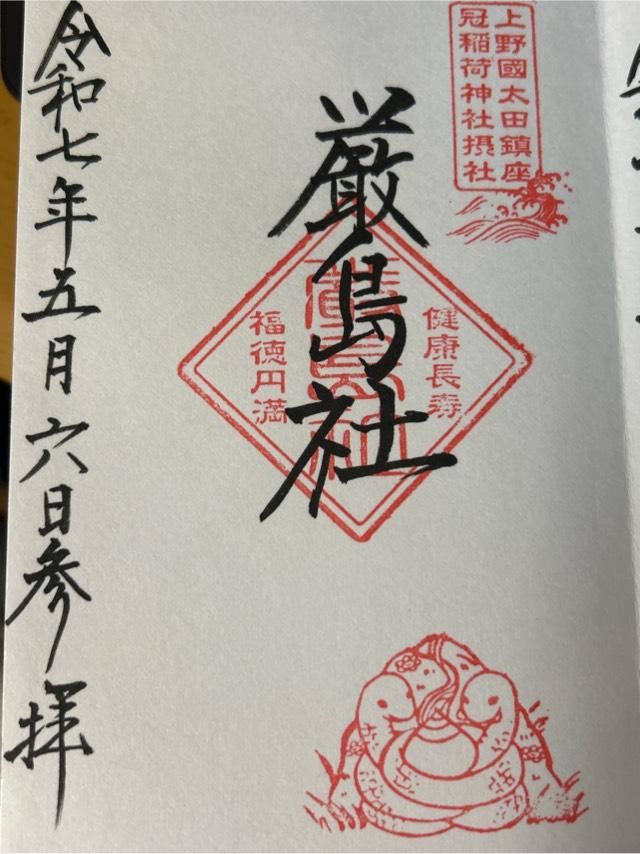 上野國太田鎮座
冠稲荷神社摂社
厳島社
健康長寿
福徳円満
厳島社
令和七年五月六日参拝